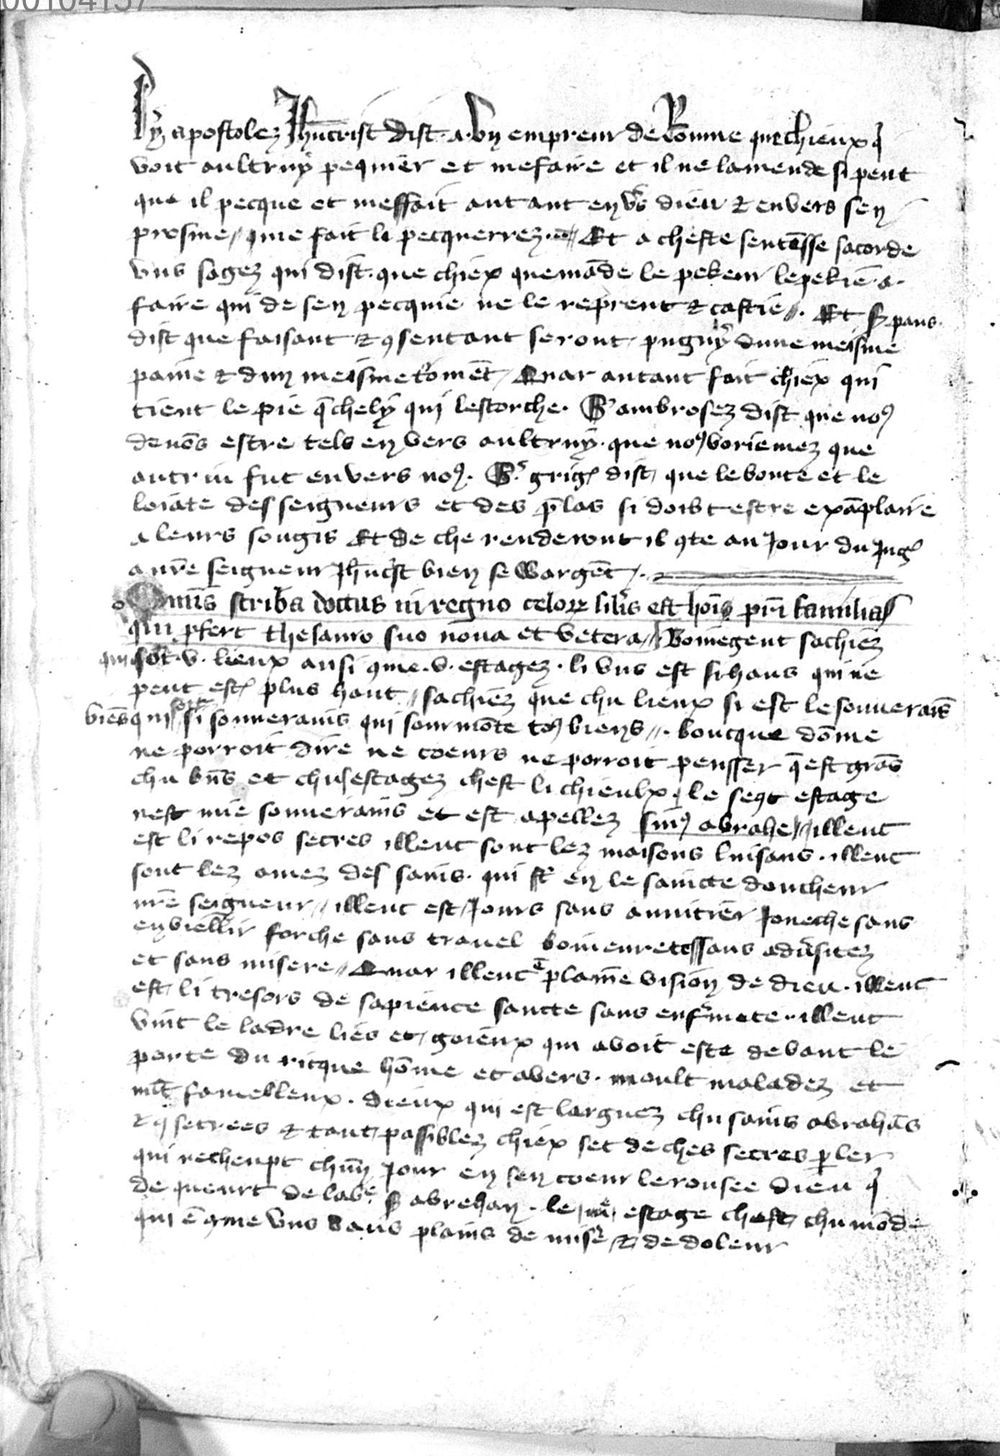 00104137
Ly apostolez Jhucrist dist a vn empreur de Romme que chieux q̄
voit aultruy pequier et mefaire et il ne lamende si peut
que il pecque et meffait autant enṽs dieu ⁊ envers sen
presme / que fait li pecquerrez. Et a cheste sentẽsse sacorde
vns sagez qui dist que chiex quemãde le pekeur le pekiẽ a
faire qui de sen pecquie ne le reprent ⁊ castie. Et S. paus
dist que faisant ⁊ ꝯsentant seront pugny dune meisme
paine ⁊ dun meisme tourmẽt / Quar autant fait chiex qui
tient le pie q̃ chely qui lescorche. S ambrosez dist que noꝰ
devõs estre tels en vers aultruy que noꝰ voriemez que
autrui fut envers noꝰ. S. grig dist que le bonte et le
loiate des seigneurs et des p̃las si doibt estre exãplaire
a leurs sougis Et de che renderont il ꝯte au Jour du Jug
a nr̃e seigneur Jhucst bien se Wargẽt
Omĩs scriba doctus in regno celorꝝ sil̃is est hoĩ pr̃i familias
qui ꝓfert thesauro suo noua et vetera // Boinegent sachiez
qui sõt .v. lieux ausi ꝯme .v. estagez. li vns est si haus qui ne
peut est plus haut // sachiez que chu lieux si est le souuerais
biẽs qui est si souuerains qui sourmõte toꝰ biens. boucque dõme
ne porroit dire ne coeurs ne porroit pensser q̃ est grãs
chu bñs et chus estagez chest li chieulx. le secꝯt estage
nest mie souuerains et est apellez sinꝰ abrahe // illeuc
est li repos secres illeuc sont lez maisons luisans. illeuc
sont lez amez des sains. qui st̃ en le saincte doucheur
nr̃e seigneur // illeuc est Jours sans annitier Joneche sans
enviellir forche sans travel boineuretessans aduˀsitez
et sans misere // Quar illeuc ẽ plaine vision de dieu. illeuc
est li tresors de sapience sancte sans enfˀmete. illeuc
vint le ladre lies et goieux qui avoit este devant le
porte du ricque hõme et avers. moult maladez et
ml̃t familleux. dieux qui est larguez chu sains abrahãs
⁊ q̃ secrees ⁊ tant passiblez chiex set de ches secres ꝑler
qui rechupt chũn Jour en sen coeur le rousee dieu q̃
de queurt de labe S abrehan. le iiiͤ estage chest chu mõde
qui ẽ ꝯme vns vaus plains de misˀe ⁊ de doleur